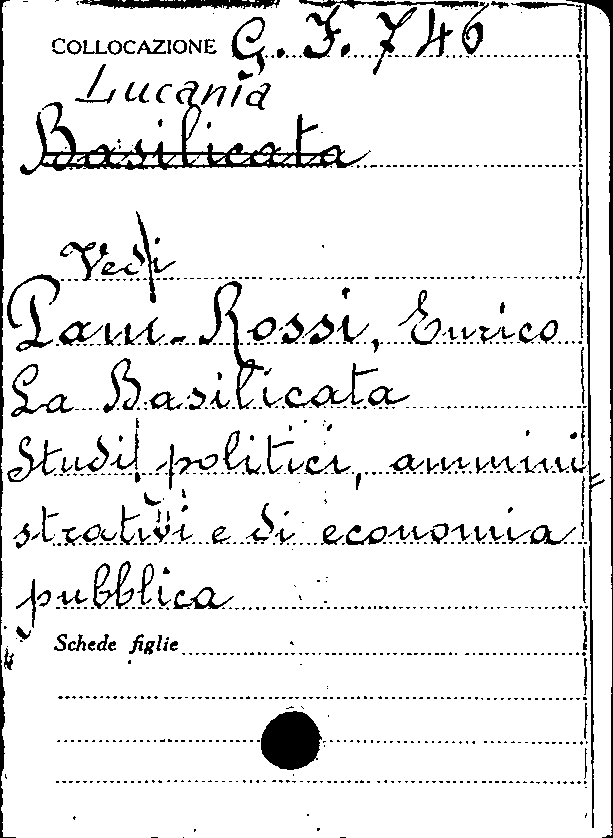 COLLOCAZIONE G. F. 746
Lucania
Basilicata
Vedi
Pani-Rossi, Enrico
La Basilicata
Studi politici, ammini=
strativi e di economia
pubblica
Schede figlie